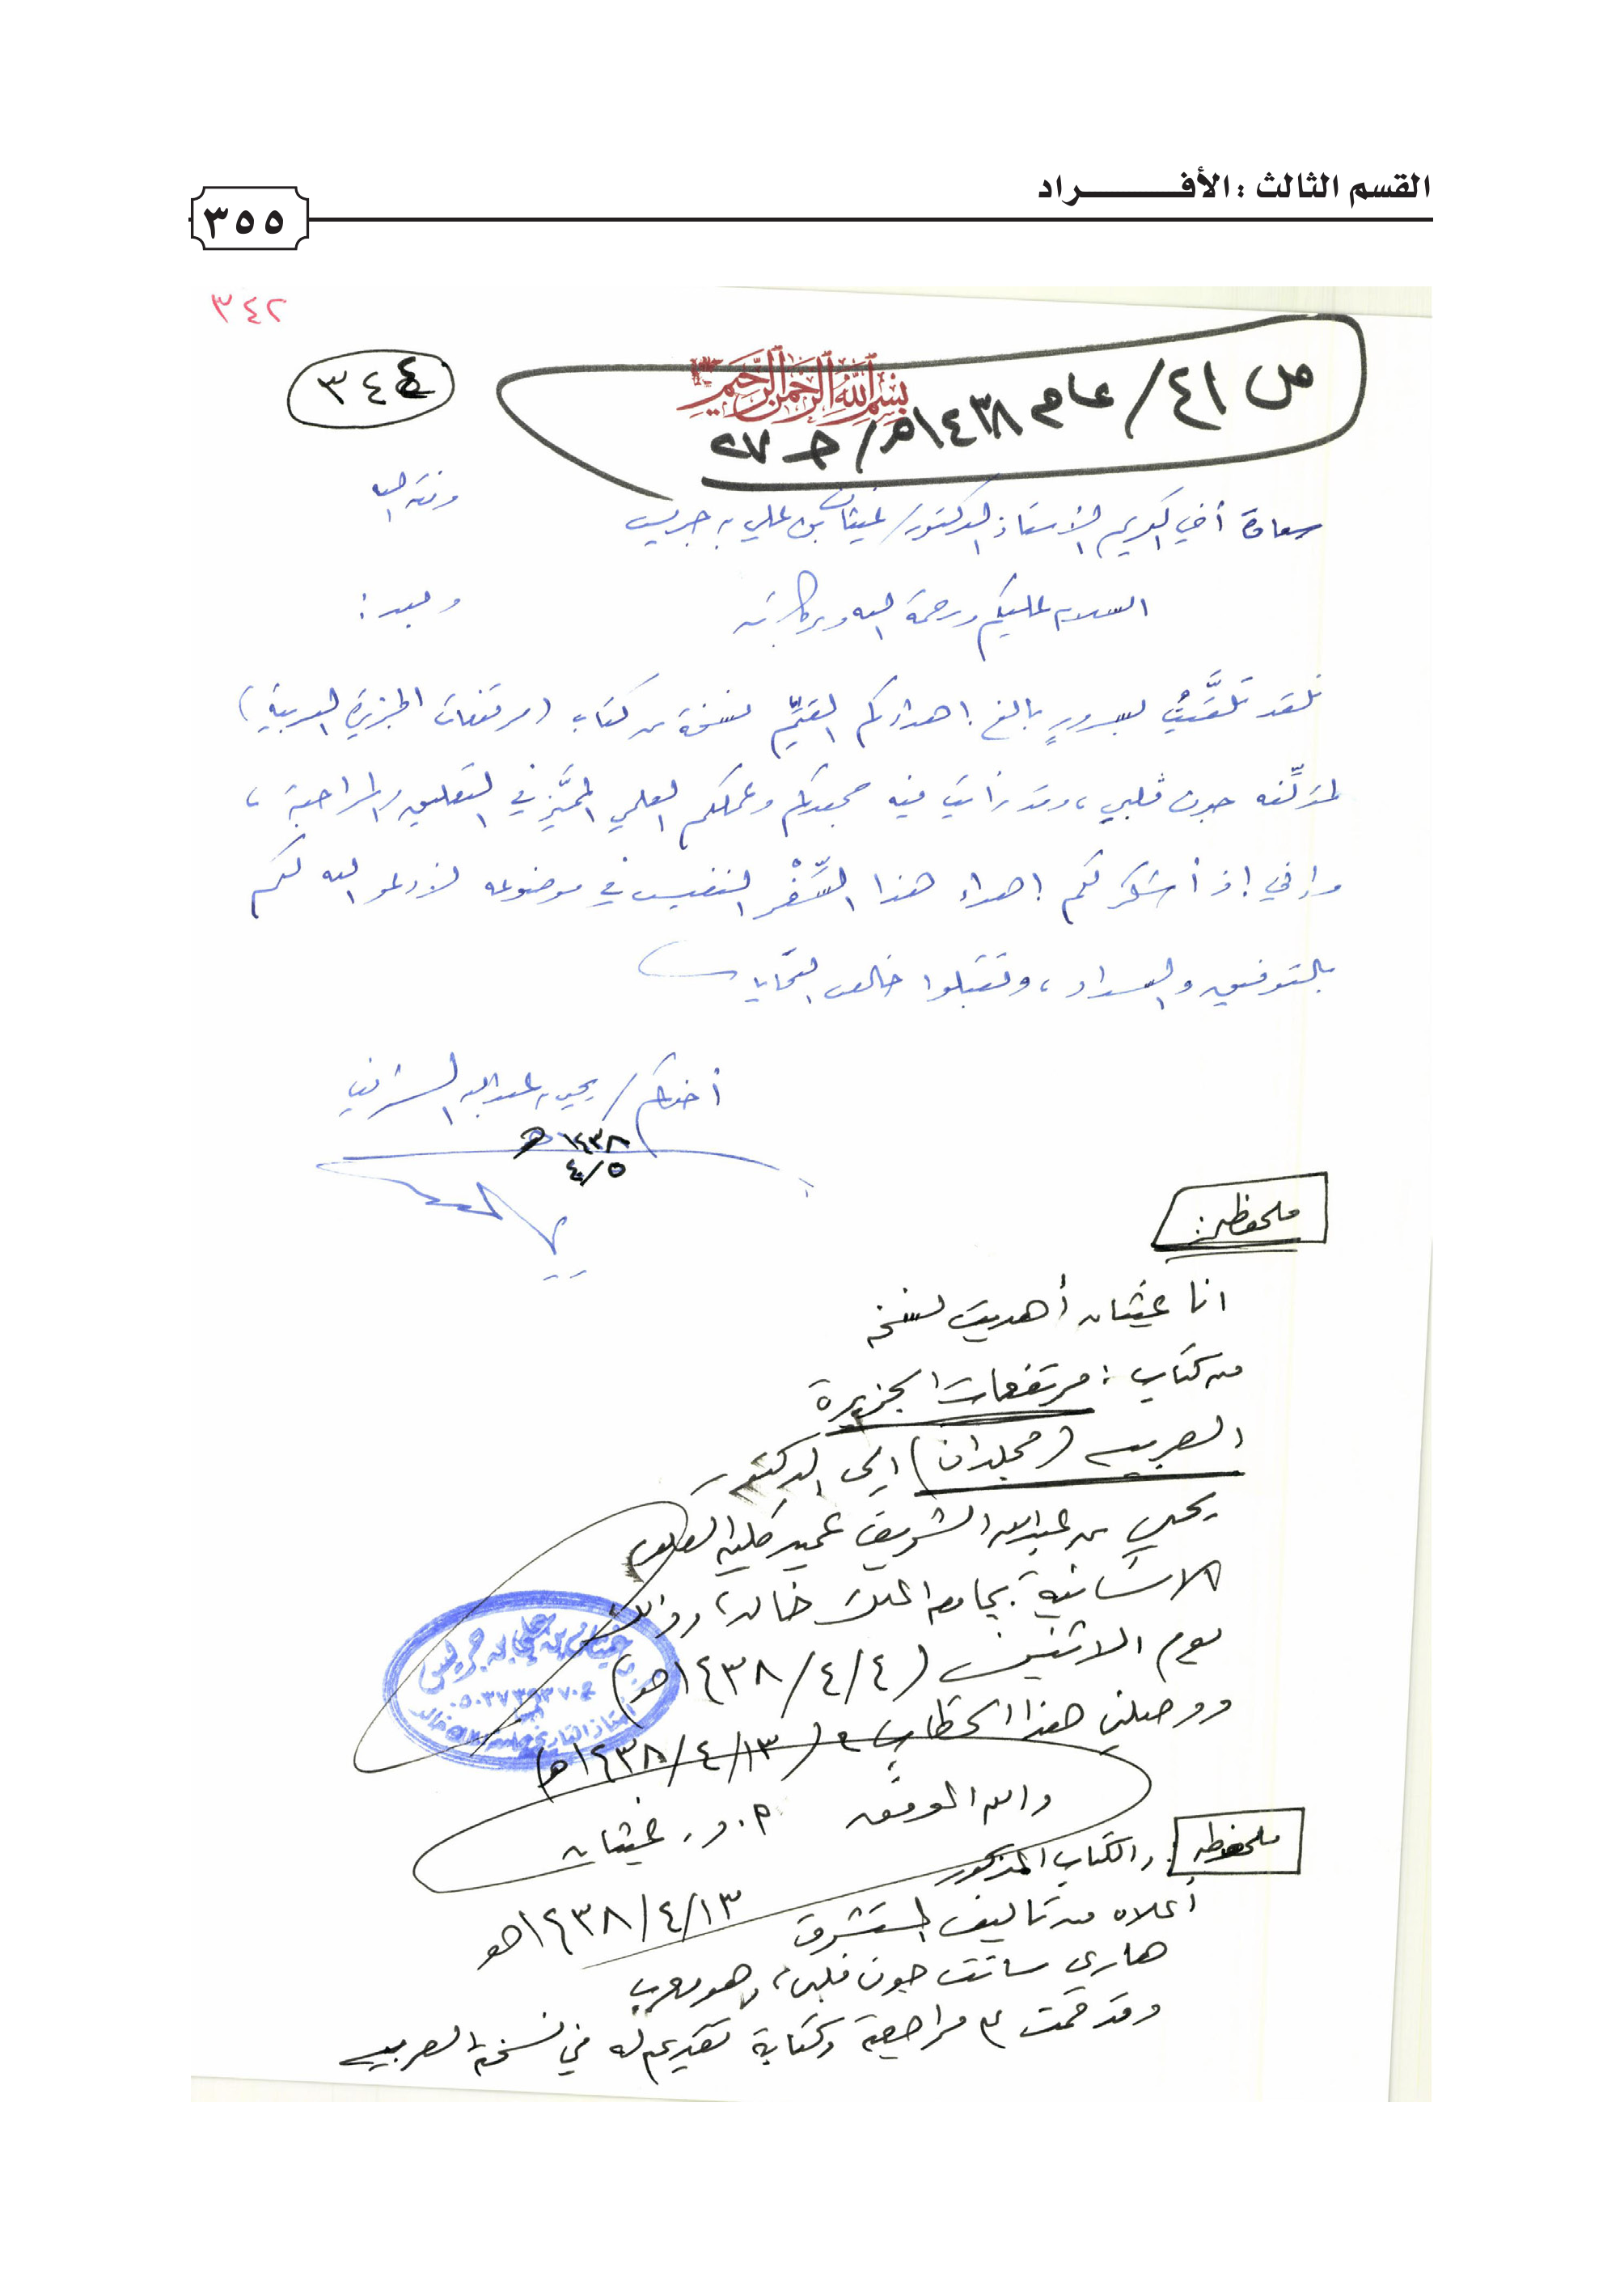 القسم الثالث : الأفـــــــراد
٣٥٥
٣٤٢
٣٤٤
بسم الله الرحمن الرحيم
ص ٤١/ عام ١٤٣٨هـ/ جـ ٢٧
سعادة أخي الكريم الأستاذ الدكتور/ غيثان بن علي بن جريس وفقه الله
السلام عليكم ورحمة الله وبركاته وبعد :
فلقد تلقَّيتُ بسرورٍ بالغ إهداءكم القيِّم نسخة من كتاب (مرتفعات الجزيرة العربية)
لمؤلِّفه جون فلبي، وقد رأيت فيه جهدكم وعملكم العلمي المميَّز في التعليق والمراجعة،
وإني إذ أشكر لكم إهداء هذا السِّفْر النفيس في موضوعه لأدعو الله لكم
بالتوفيق والسداد، وتقبلوا خالص التحايا
أخوكم/ يحيى بن عبدالله الشريف
١٤٣٨هـ
٤/٥
ملحوظة:
انا غيثان أهديت نسخة
من كتاب : مرتفعات الجزيرة
العربية (مجلدان) الى الدكتور
يحيى بن عبدالله الشريف عميد كلية العلوم
الانسانية بجامعة الملك خالد، وذلك
يوم الاثنين (١٤٣٨/٤/٤هـ)
ووصلني هذا الخطاب في (١٤٣٨/٤/١٣هـ)
والله الموفق أ.د. غيثان
١٤٣٨/٤/١٣هـ
غيثان بن علي بن جريس
أستاذ التاريخ
ملحوظة : والكتاب المذكور
أعلاه من تأليف المستشرق
هاري سانت جون فلبي، وهو معرب
وقد قمت على مراجعة وكتابة تقديم له في نسخته العربية